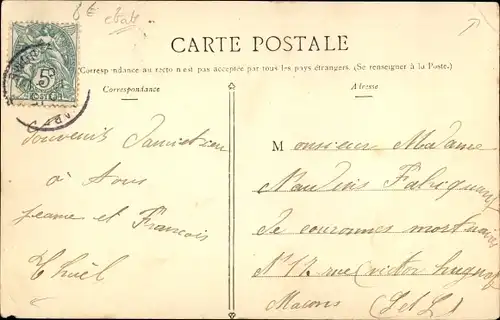 CARTE POSTALE
(Correspondance au recto n'est pas acceptée par tous les pays étrangers. (Se renseigner à la Poste.)
Correspondance
Adresse
5
souvenir
à tous
et Francois
Monsieur Madame
Fabriquant
de couronnes mortuaires
N° 17 rue victor hugo
Macons (S et L)